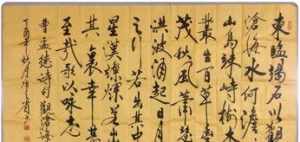 東臨碣石以觀
滄海水何澹
山島竦峙樹木
叢生百草豐
茂秋風蕭瑟
洪波涌起日月
之行若出其中
星漢燦爛若出
其裏幸甚
至哉歌以咏志
曹孟德詩觀滄海
丁酉年秋月